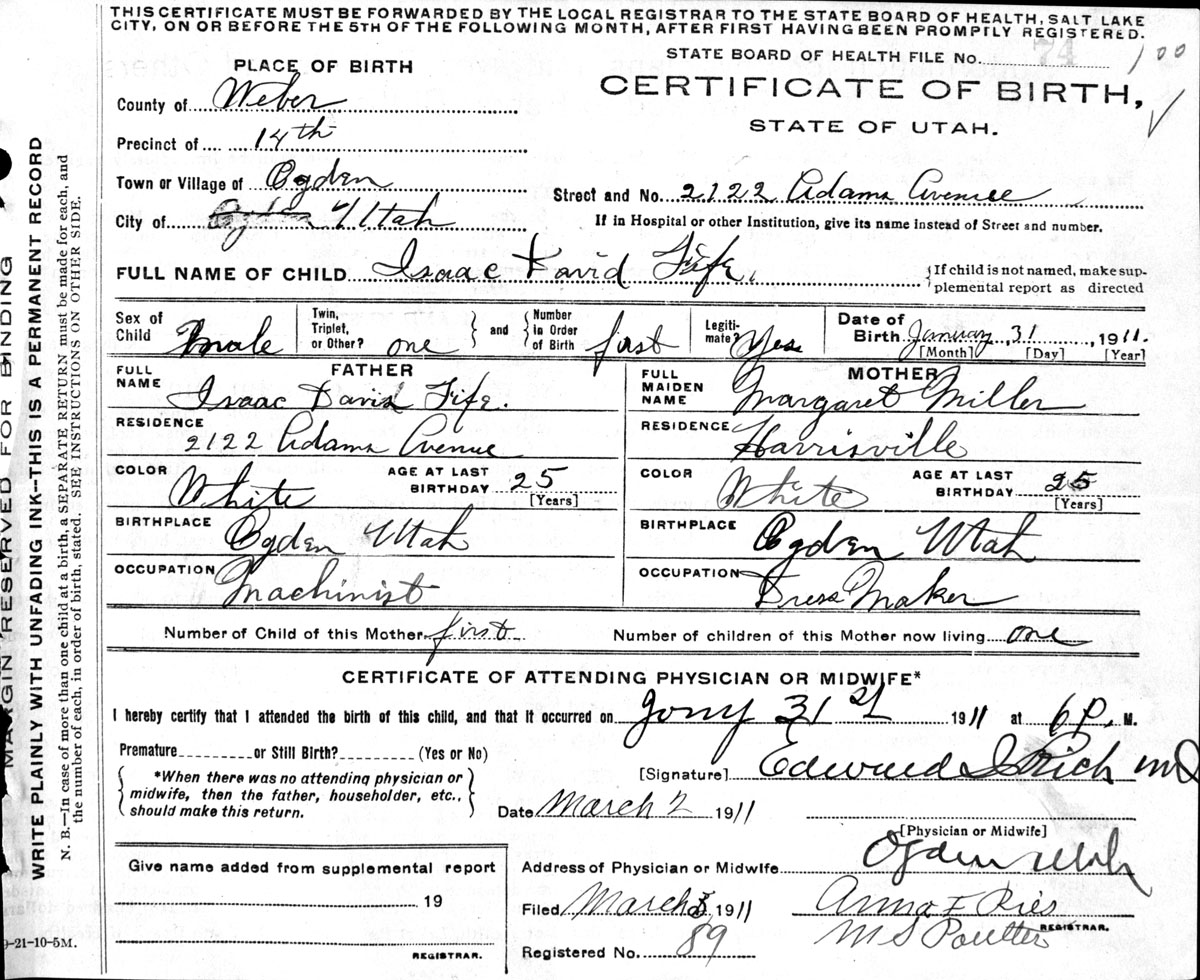 THIS CERTIFICATE MUST BE FORWARDED BY THE LOCAL REGISTRAR TO THE STATE BOARD OF HEALTH, SALT LAKE
CITY, ON OR BEFORE THE 5TH OF THE FOLLOWING MONTH, AFTER FIRST HAVING BEEN PROMPTLY REGISTERED.
STATE BOARD OF HEALTH FILE No. 74 100
PLACE OF BIRTH
CERTIFICATE OF BIRTH,
STATE OF UTAH.
County of Weber
Precinct of 14th
Town or Village of Ogden
Street and No. 2122 Adams Avenue
City of Ogden Utah
If in Hospital or other Institution, give its name instead of Street and number.
FULL NAME OF CHILD Isaac David Fife.
{If child is not named, make sup-
plemental report as directed
Sex of Child Male
Twin, Triplet, or Other? one } and { Number in Order of Birth first
Legiti- mate? Yes
Date of Birth January 31 1911.
[Month] [Day] [Year]
FATHER
FULL NAME Isaac David Fife.
RESIDENCE 2122 Adams Avenue
COLOR White AGE AT LAST BIRTHDAY 25 [Years]
BIRTHPLACE Ogden Utah
OCCUPATION Machinist
MOTHER
FULL MAIDEN NAME Margaret Miller
RESIDENCE Harrisville
COLOR White AGE AT LAST BIRTHDAY 25 [Years]
BIRTHPLACE Ogden Utah
OCCUPATION Dress Maker
Number of Child of this Mother first Number of children of this Mother now living one
CERTIFICATE OF ATTENDING PHYSICIAN OR MIDWIFE*
I hereby certify that I attended the birth of this child, and that it occurred on Jany 31st 1911 at 6 P. M.
Premature or Still Birth? (Yes or No)
*When there was no attending physician or
midwife, then the father, householder, etc.,
should make this return.
[Signature] Edward I Rich MD
Date March 2 1911
[Physician or Midwife]
Address of Physician or Midwife Ogden Utah
Give name added from supplemental report
19
REGISTRAR.
Filed March 3 1911 Anna F Ries
M S Poulter REGISTRAR.
Registered No. 89
9-21-10-5M.
MARGIN RESERVED FOR BINDING
WRITE PLAINLY WITH UNFADING INK--THIS IS A PERMANENT RECORD
N. B.—In case of more than one child at a birth, a SEPARATE RETURN must be made for each, and
the number of each, in order of birth, stated. SEE INSTRUCTIONS ON OTHER SIDE.